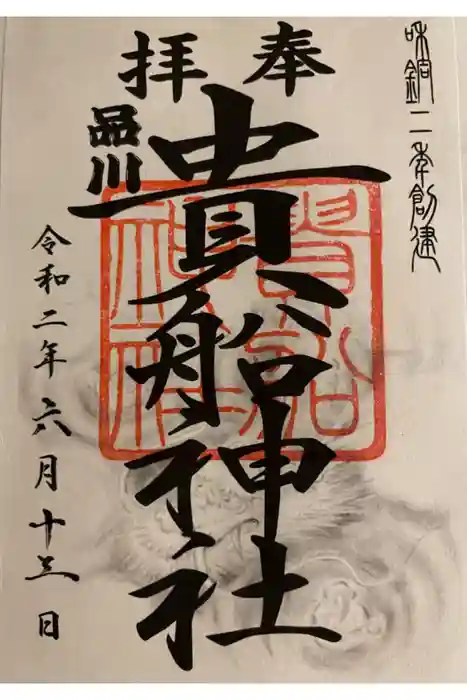 和銅二年創建
奉拝
品川
貴船神社
貴船神社
令和二年六月十三日